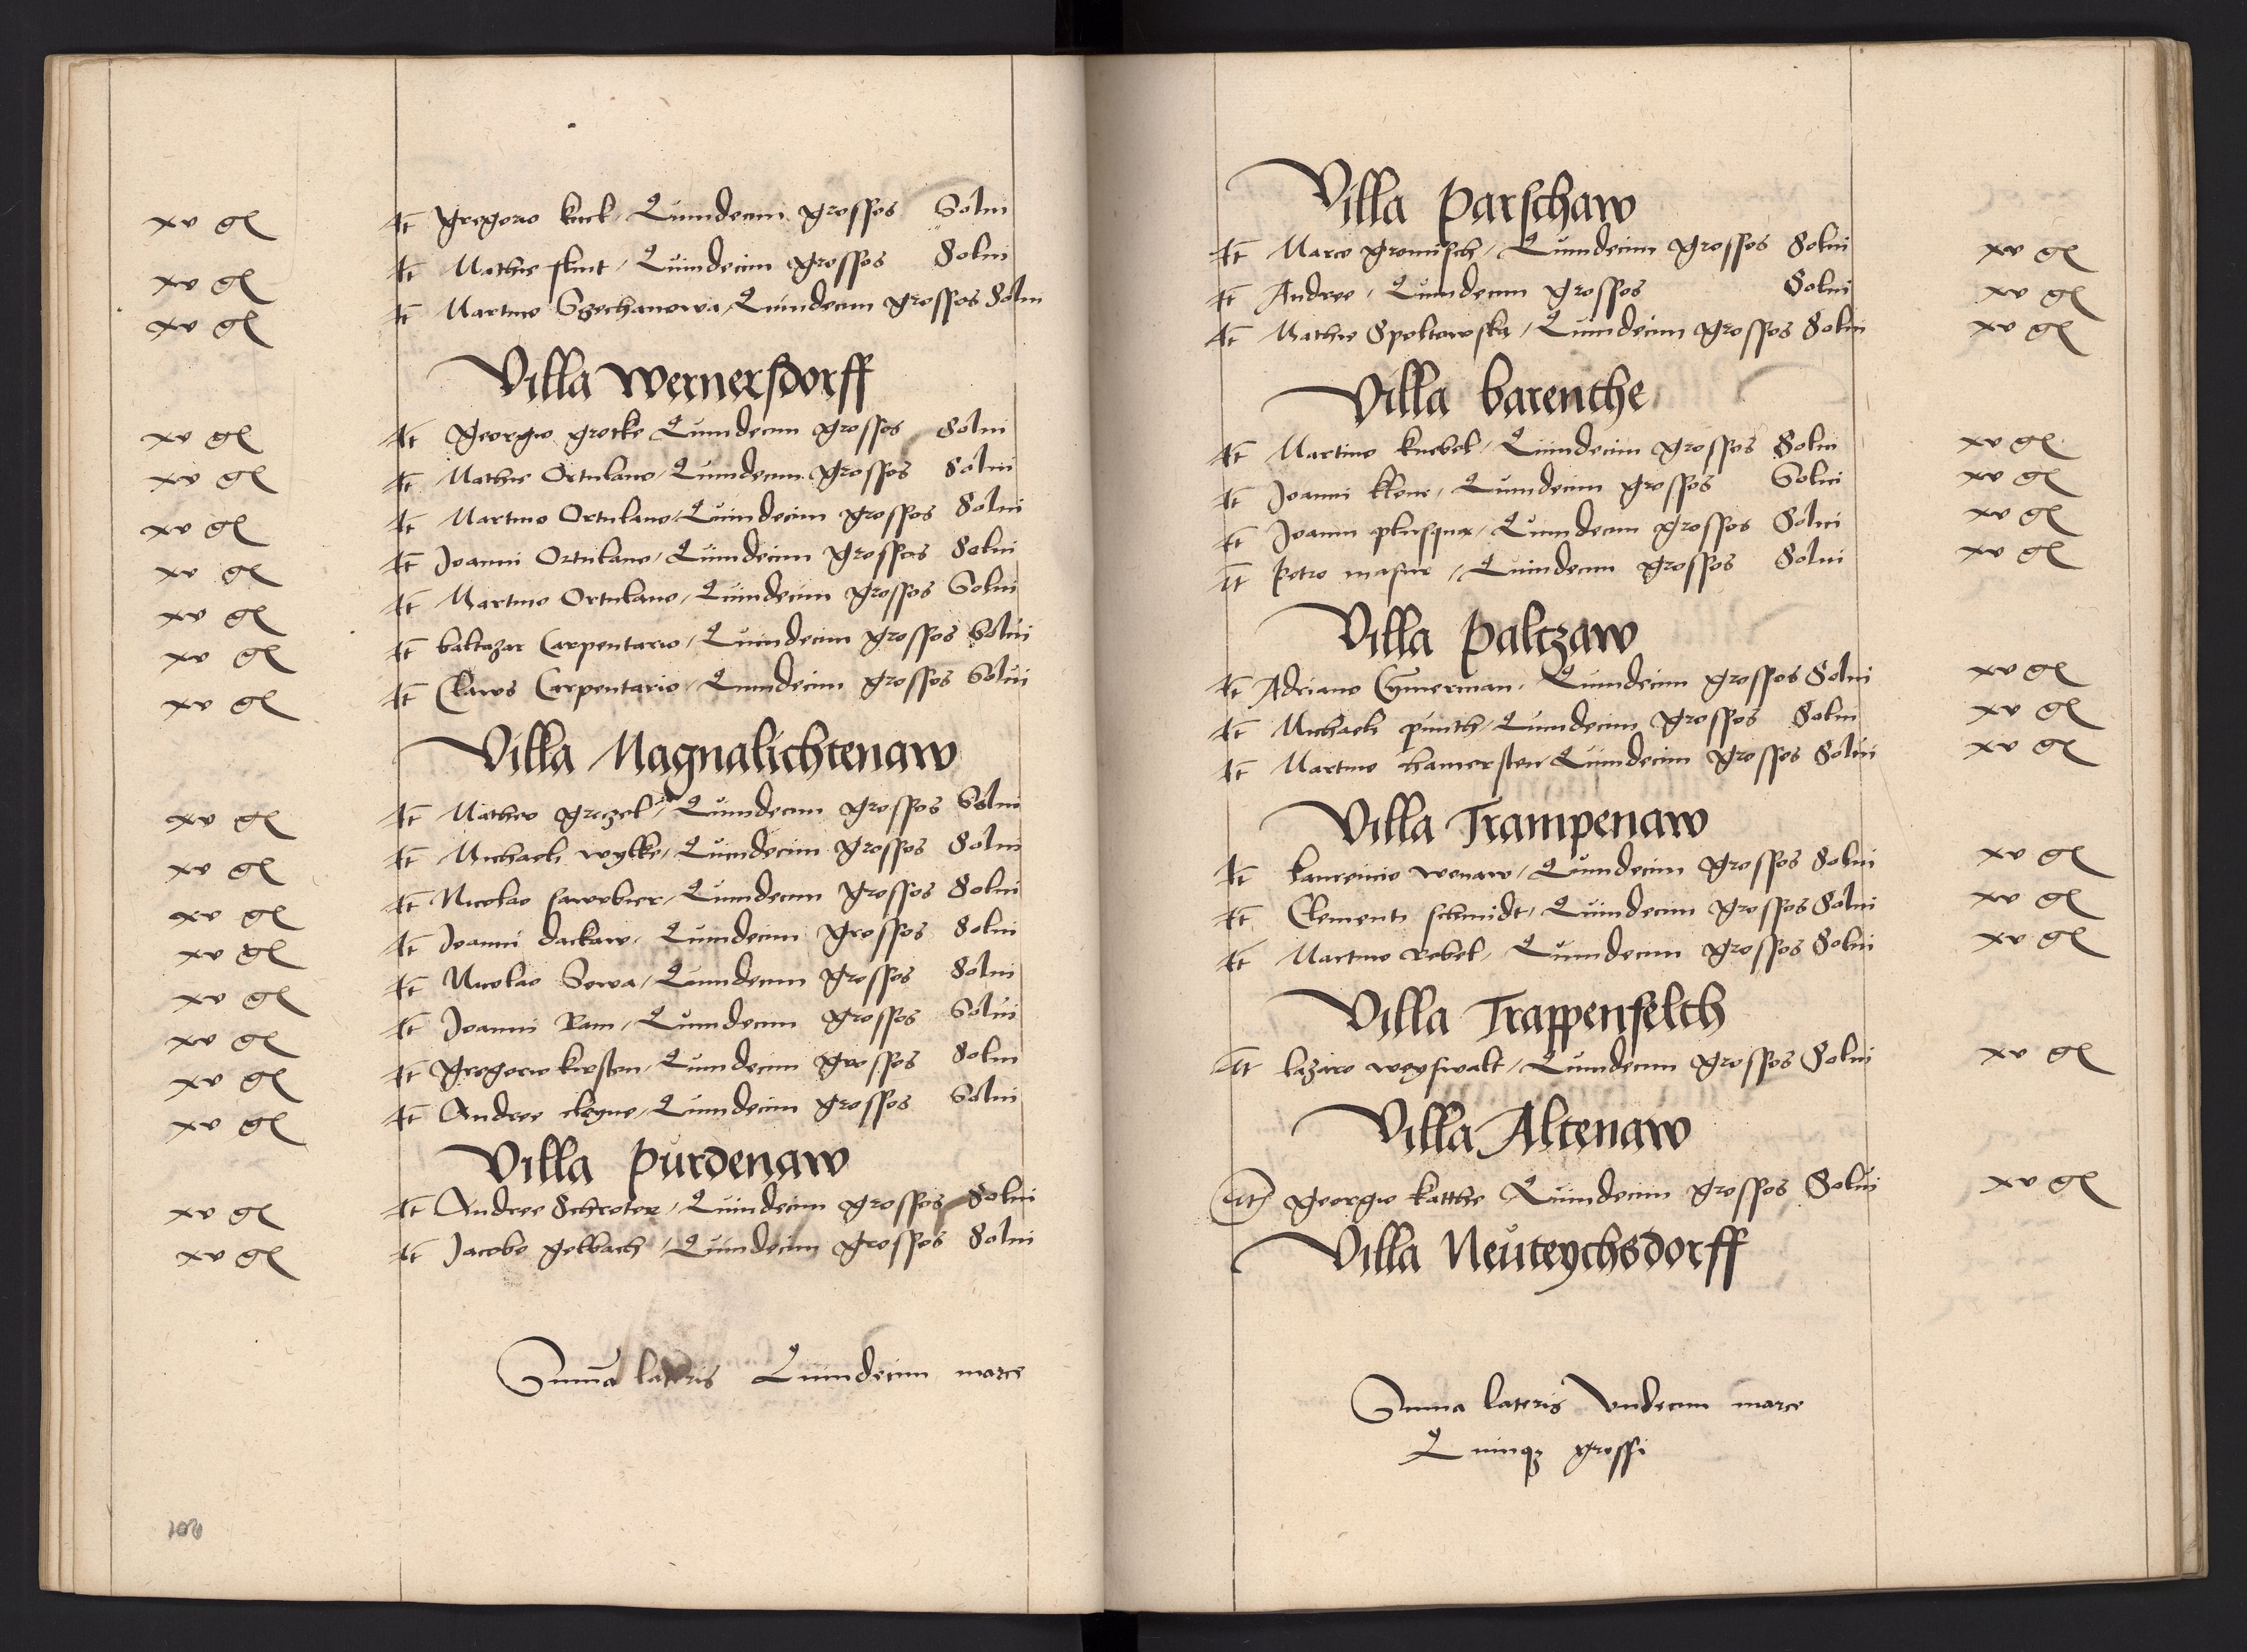 xv gl It Gregorio kuck / Quindecim grossos Solui
xv gl It Mathie flint / Quindecim grossos Solui
xv gl It Martino Szechanowa / Quindecim grossos Solui
Villa Wernersdorff
xv gl It Georgio grotke Quindecim grossos Solui
xv gl It Mathie Ortulano / Quindecim grossos Solui
xv gl It Martino Ortulano / Quindecim grossos Solui
xv gl It Joanni Ortulano / Quindecim grossos Solui
xv gl It Martino Ortulano / Quindecim grossos Solui
xv gl It baltazar Carpentario / Quindecim grossos Solui
xv gl It Claws Carpentario / Quindecim grossos Solui
Villa Magnalichtenaw
xv gl It Matheo greczel / Quindecim grossos Solui
xv gl It Michaeli wylke / Quindecim grossos Solui
xv gl It Nicolao sawrbier / Quindecim grossos Solui
xv gl It Joanni dackaw / Quindecim grossos Solui
xv gl It Nicolao Sowa / Quindecim grossos Solui
xv gl It Joanni Ram / Quindecim grossos Solui
xv gl It Gregorio kirsten / Quindecim grossos Solui
xv gl It Andree cleyne / Quindecim grossos Solui
Villa purdenaw
xv gl It Andree Schroter / Quindecim grossos Solui
xv gl It Jacobo gelbach / Quindecim grossos Solui
Summa lateris Quindecim marce
Villa parschaw
It Marco gromisch / Quindecim grossos Solui xv gl
It Andree / Quindecim grossos Solui xv gl
It Mathie Spoltowska / Quindecim grossos Solui xv gl
Villa barenthe
It Martino knebel / Quindecim grossos Solui xv gl
It Joanni klene / Quindecim grossos Solui xv gl
It Joanni plusqua / Quindecim grossos Solui xv gl
It petro masur / Quindecim grossos Solui xv gl
Villa palczaw
It Adriano Cymerman / Quindecim grossos Solui xv gl
It Michaeli punth / Quindecim grossos Solui xv gl
It Martino hamersten Quindecim grossos Solui xv gl
Villa Trampenaw
It laurencio wonaw / Quindecim grossos Solui xv gl
It Clementi schmidt / Quindecim grossos Solui xv gl
It Martino Rebel / Quindecim grossos Solui xv gl
Villa Trappenfelth
It lazaro weyswalt / Quindecim grossos Solui xv gl
Villa Altenaw
It georgio katthe Quindecim grossos Solui xv gl
Villa Neuteychsdorff
Summa lateris Vndecim marce
Quinqz grossi